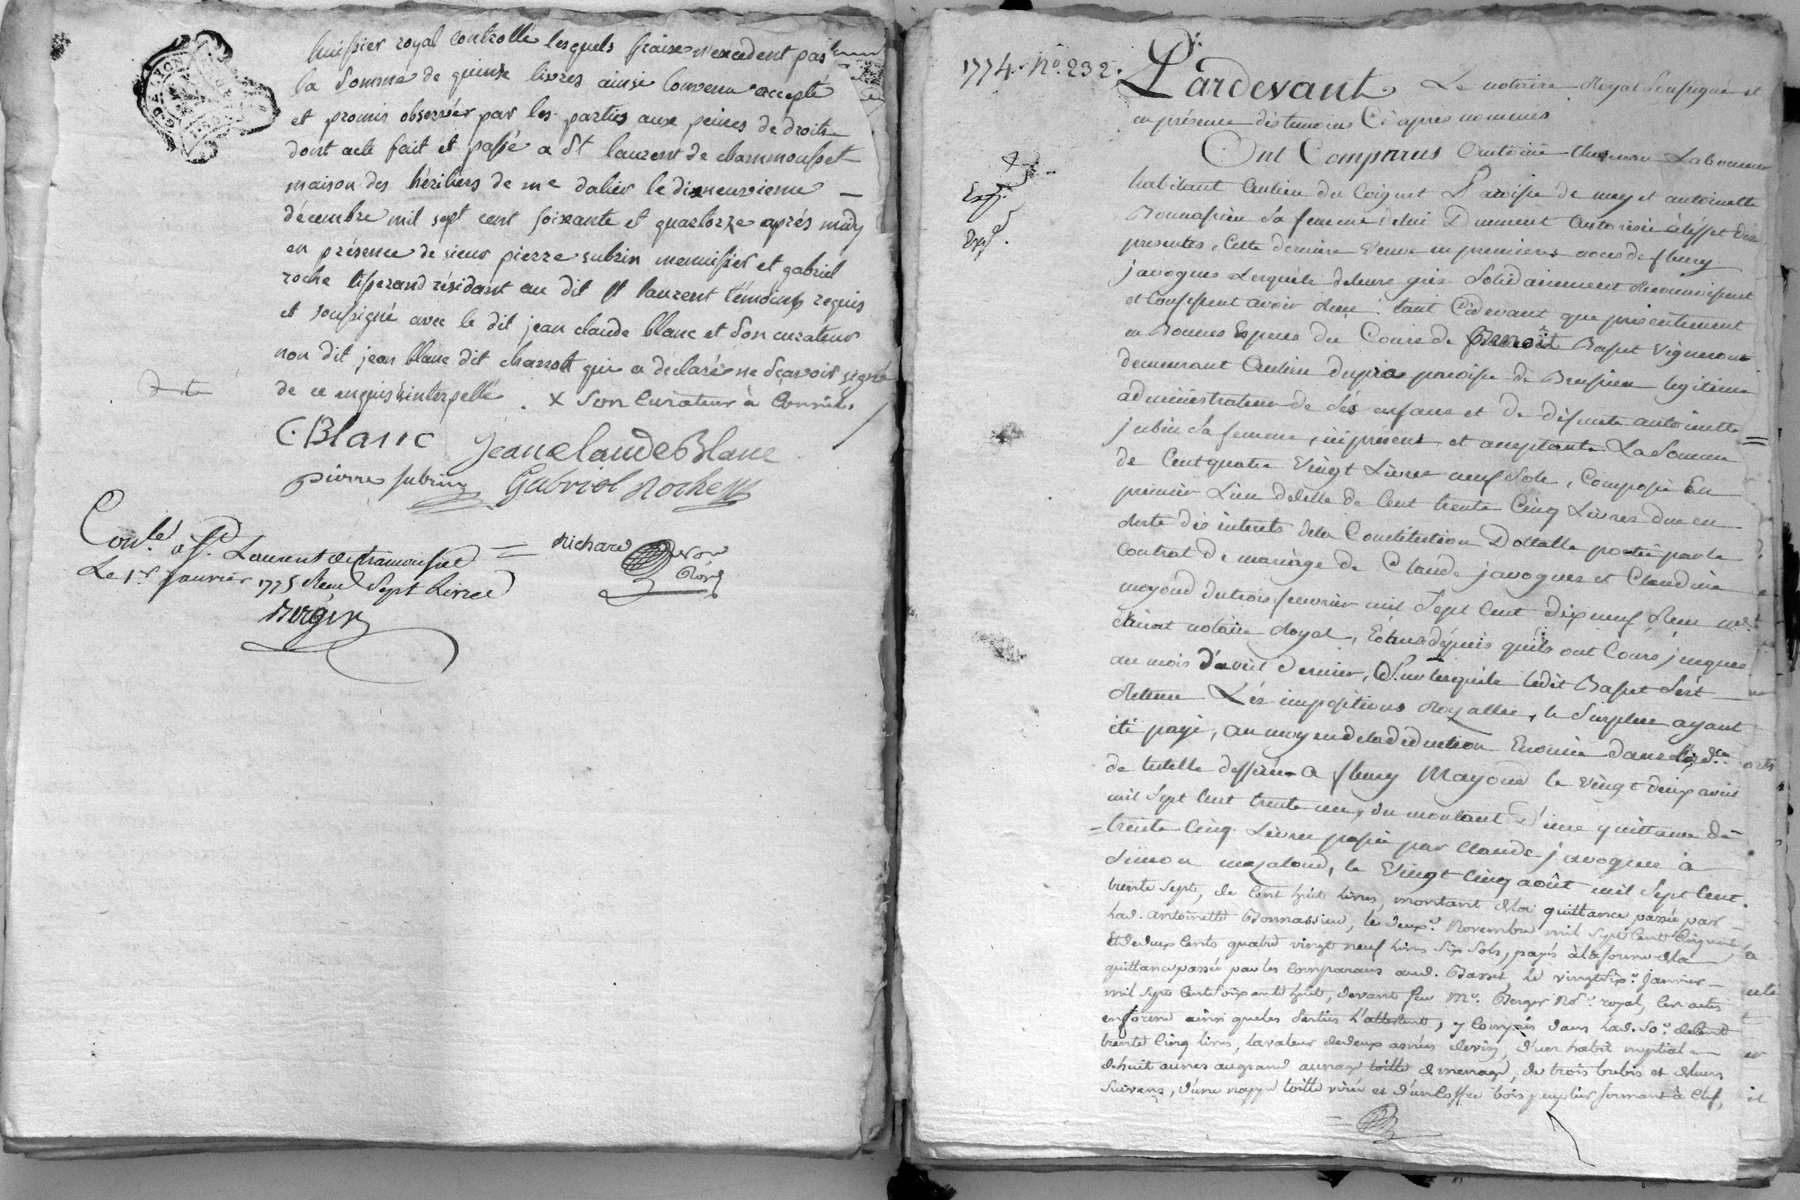 huissier royal controlle lesquels fraix n'excedent pas
la somme de quinze livres ainsi convenu accepté
et promis observer par les parties aux peines de droit
dont acte fait et passé a St laurent de chammousset
maison des héritiers de me dalier le dixneuvieme
décembre mil sept cent soixante et quatorze après midy
en présence de sieur pierre subrin menuisier et gabriel
roche tisserand résidant au dit st laurent témoins requis
et soussigné avec le dit jean claude blanc et son curateur
non dit jean blanc dit charrott qui a déclaré ne sçavoir signé
de ce enquis & interpellé. x son curateur à
C Blanc Jean claude Blanc
pierre subrin Gabriel Roche
Con.lé a St. Laurent de chamousset
Le 1er janvier 1775 Reçu Sept Livres
Berger
Richard
1774. No. 232.
Pardevant Le notaire Royal soussigné et
en présence des temoins Ci apres nommés
Ont Comparus Laboureur
habitant au lieu du Coignet Paroisse de meys et antoinette
Bonnassieu sa femme de lui Dument autorisée à l'effet des
presentes, Cette derniere veuve en premieres noces de fleury
javogues Lesquels de leurs grés solidairement reconnoissent
et Confessent avoir recu tant Cidevant que presentement
en Bonnes Especes du Cours de Benoît Basset Vigneron
demeurant au lieu dupra paroisse de Bressieu legitime
administrateur de ses enfans et de défunte antoinette
jubin sa femme, ici présent et acceptant La Somme
de Cent quatre Vingt Livres neuf Sols, Composée En
premier Lieu de celle de Cent trente Cinq Livres due en
reste des interets de la Constitution Dottalle portée par le
contrat de mariage de Claude javogues et Claudine
mayoud du trois fevrier mil sept Cent dix neuf Reçu me.
notaire Royal, Echus depuis qu'ils ont Couru jusques
au mois d'avril dernier, Sur lesquels ledit Basset s'est
retenu Les impositions Royalles, le surplus ayant
été payé, au moyen de la deduction Enoncée dans
de tutelle dessérée a fleury Mayoud le vingt deux avril
mil sept Cent trente un, du montant d'une quittance de
trente Cinq Livres passée par Claude javogues à
Simon mazalond, le Vingt Cinq août mil sept Cent
trente sept, de Cent huit livres, montant de la quittance passée par
lad. antoinette Bonnassieu, le deux.e Novembre mil sept Cent Cinquante,
Et de deux Cents quatre vingt neuf livres six sols, payés à la forme de la
quittance passée par les Comparans aud. Basset le vingt six.e Janvier
mil sept Cent soixante huit, devant feu Me. Berger No.re royal, les actes
en forme ainsi que les parties l'attestent, y Compris dans lad. so.e de Cent
trente Cinq livres, la valeur de deux asnées de vin, d'un habit nuptial
de huit aunes au grand aunage toille de menage, de trois brebis et leurs
suivans, d'une nappe toille et d'un Coffre bois peuplier fermant à clef,